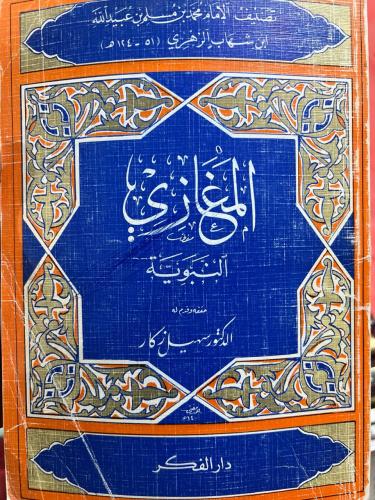 تصنيف الإمام محمد بن مسلم بن عبيد الله
ابن شهاب الزهري (٥١ - ١٢٤ هـ)
المغازي
النبوية
حققه وقدم له
الدكتور سهيل زكار
دار الفكر